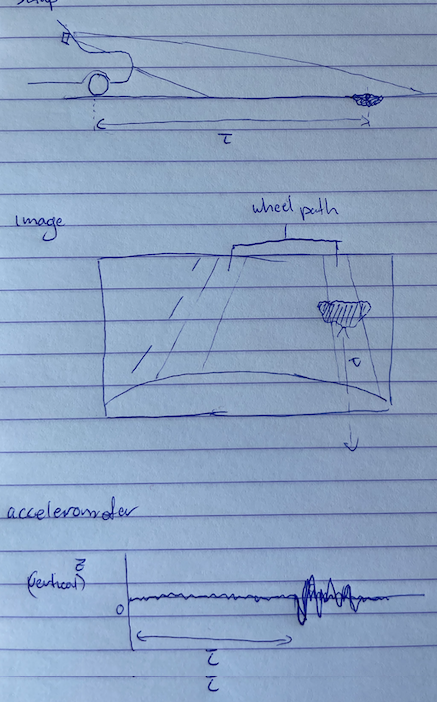 setup
τ
image
wheel path
τ
accelerometer
z̈
(vertical)
0
τ
τ